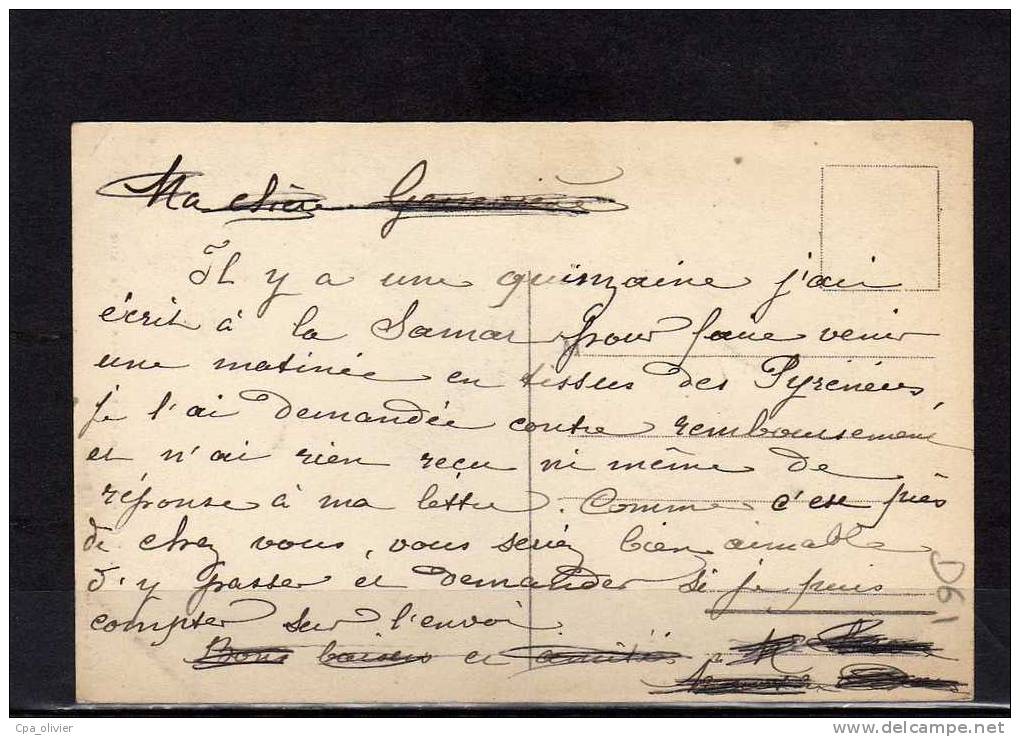 Ma chère Geneviève
Il y a une quinzaine j'ai
écrit à la Samar pour faire venir
une matinée en tissus des Pyrénées,
je l'ai demandée contre remboursement
et n'ai rien reçu ni même de
réponse à ma lettre. Comme c'est près
de chez vous, vous seriez bien aimable
d'y passer et demander si je puis
compter sur l'envoi.
Bons baisers et amitiés M
D61
Cpa_olivier
www.delcampe.net